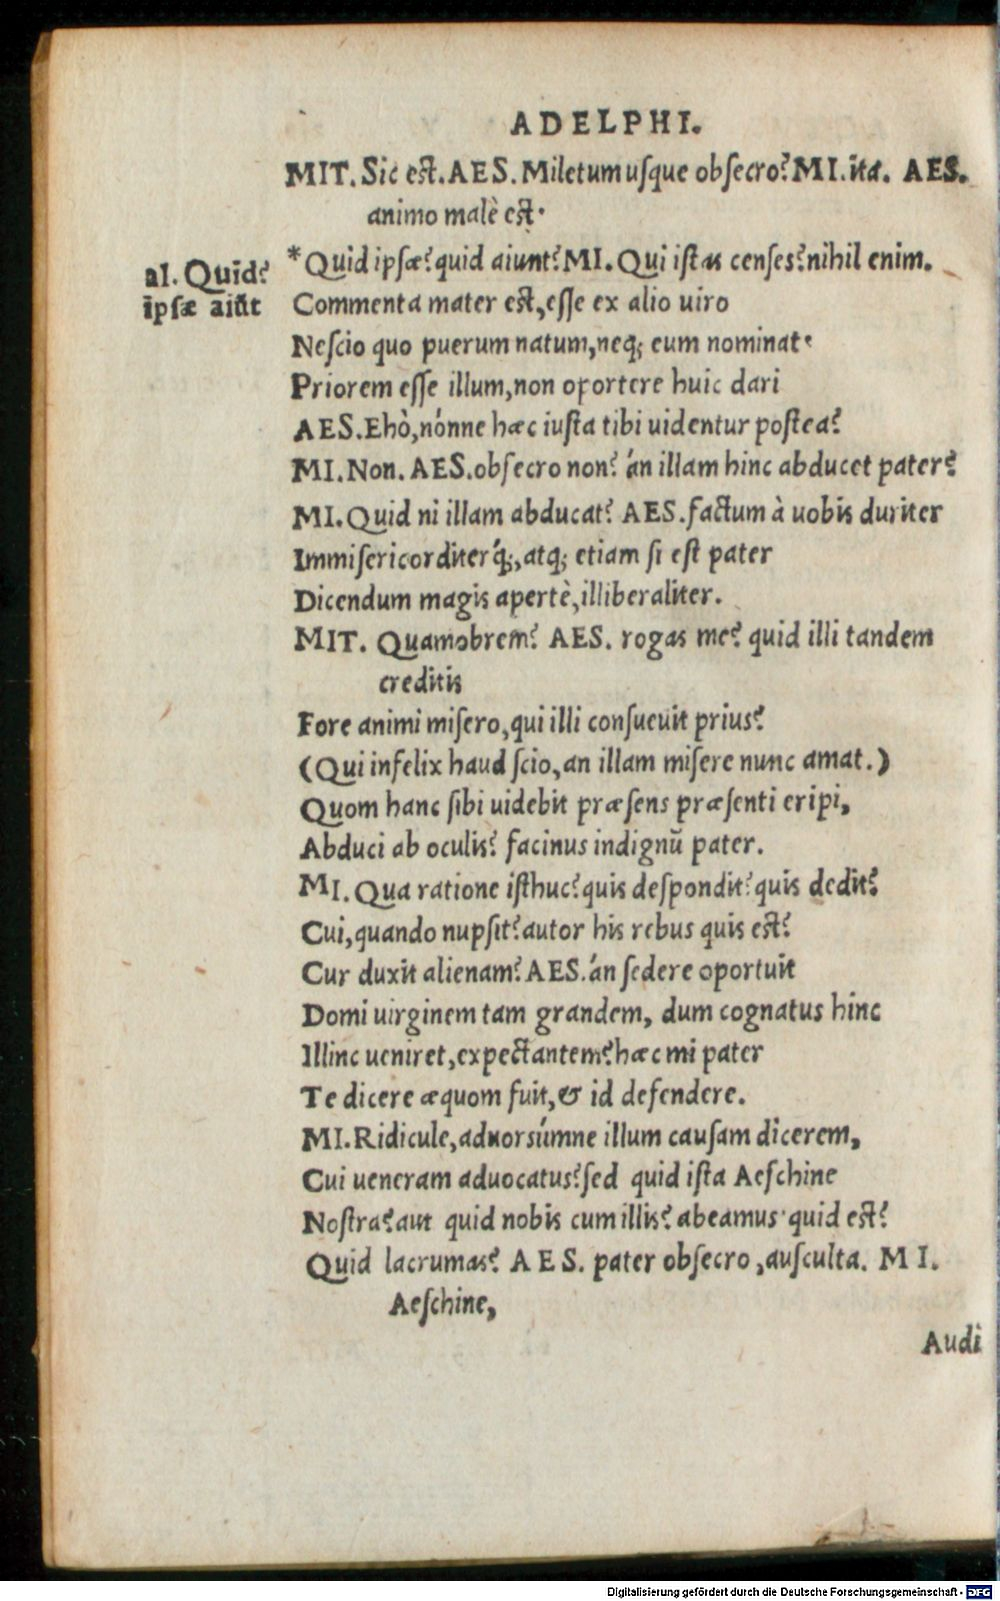 ADELPHI.
MIT. Sic est. AES. Miletum usque obsecro? MI. ita. AES.
animo malè est.
al. Quid?
ipsæ aiũt
*Quid ipsæ? quid aiunt? MI. Qui istas censes? nihil enim.
Commenta mater est, esse ex alio uiro
Nescio quo puerum natum, neq; eum nominat.
Priorem esse illum, non oportere huic dari
AES. Ehò, nónne hæc iusta tibi uidentur postea?
MI. Non. AES. obsecro non? án illam hinc abducet pater?
MI. Quid ni illam abducat? AES. factum à uobis duriter
Immisericorditerq́;, atq; etiam si est pater
Dicendum magis apertè, illiberaliter.
MIT. Quamobrem? AES. rogas me? quid illi tandem
creditis
Fore animi misero, qui illi consueuit prius?
(Qui infelix haud scio, an illam misere nunc amat.)
Quom hanc sibi uidebit præsens præsenti eripi,
Abduci ab oculis? facinus indignũ pater.
MI. Qua ratione isthuc? quis despondit? quis dedit?
Cui, quando nupsit? autor his rebus quis est?
Cur duxit alienam? AES. án sedere oportuit
Domi uirginem tam grandem, dum cognatus hinc
Illinc ueniret, expectantem? hæc mi pater
Te dicere æquom fuit, & id defendere.
MI. Ridicule, aduorsúmne illum causam dicerem,
Cui ueneram aduocatus? sed quid ista Aeschine
Nostra? aut quid nobis cum illis? abeamus· quid est?
Quid lacrumas? AES. pater obsecro, ausculta. MI.
Aeschine,
Audi
Digitalisierung gefördert durch die Deutsche Forschungsgemeinschaft - DFG